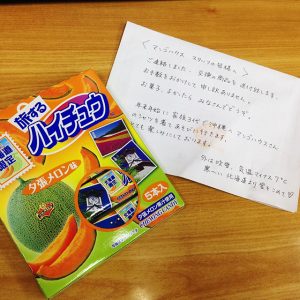 旅する
ハイチュウ
限定
夕張メロン味
5本入
夕張メロン果汁使用
マンゴハウス スタッフの皆様へ
ご連絡しました、交換の商品を お送り致します。
お手数をおかけして申し訳ありません。
お菓子、よかったら みなさんでどうぞ。
年末年始に 家族 沖縄へ マンゴハウスさん
のシャツを着てあそびに行きます。
とても楽しみにしております。
外は吹雪、気温マイナス7℃と
北海道より愛をこめて